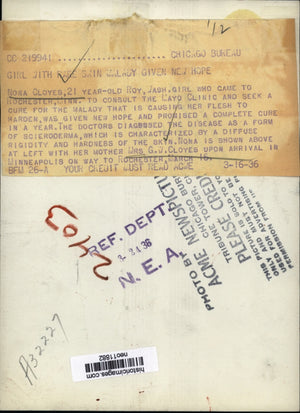 '12
CC 219941 CHICAGO BUREAU
GIRL WITH RARE SKIN MALADY GIVEN NEW HOPE
NONA CLOYES, 21 YEAR-OLD ROY, WASH. GIRL WHO CAME TO
ROCHESTER, MINN. TO CONSULT THE MAYO CLINIC AND SEEK A
CURE FOR THE MALADY THAT IS CAUSING HER FLESH TO
HARDEN, WAS GIVEN NEW HOPE AND PROMISED A COMPLETE CURE
IN A YEAR. THE DOCTORS DIAGNOSED THE DISEASE AS A FORM
OF SCLERODERMA, WHICH IS CHARACTERIZED BY A DIFFUSE
RIGIDITY AND HARDNESS OF THE SKIN. NONA IS SHOWN ABOVE
AT LEFT WITH HER MOTHER MRS G. J. CLOYES UPON ARRIVAL IN
MINNEAPOLIS ON WAY TO ROCHESTER, MARCH 16.
BFM 26-A YOUR CREDIT MUST READ ACME 3-16-36
2403
REF. DEPT.
N. E. A.
PHOTO BY
ACME NEWSPICTURES
TRIBUNE TOWER,
PLEASE CREDIT
THIS PICTURE IS SOLD TO
ONLY AND MUST NOT BE
A32227
historicimages.com
neo11882